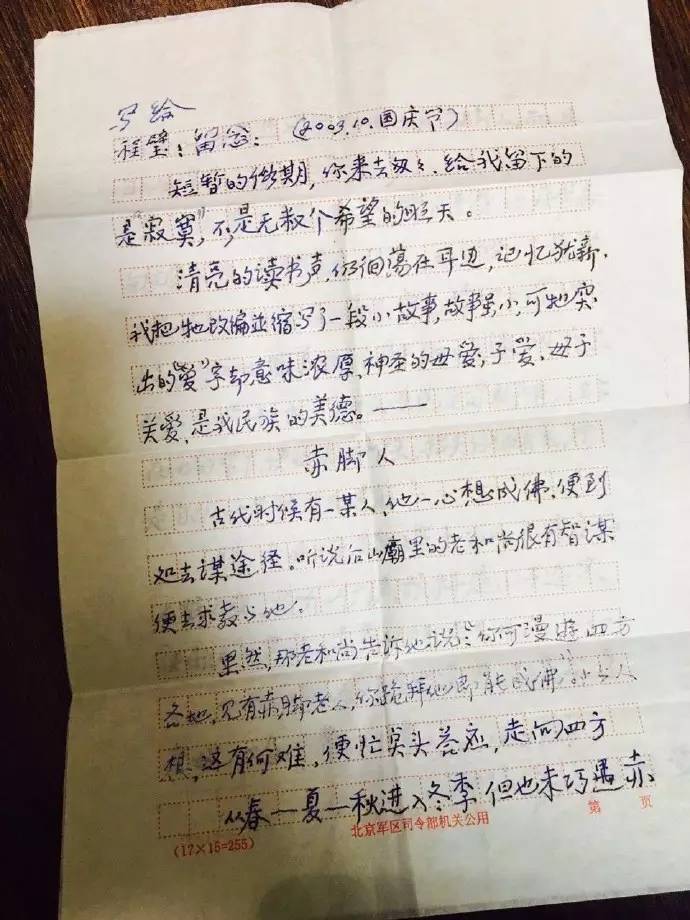 写给
程璧：留念：（2003.10.国庆节）
短暂的假期，你来去匆匆，给我留下的
是“寂寞”，不是无数个希望的明天。
清亮的读书声，仍徊荡在耳边，记忆犹新，
我把牠改编並缩写了一段小故事，故事虽小，可牠突
出的“爱”字却意味浓厚，神圣的母爱，子爱、母子
关爱，是我民族的美德。——
赤脚人
古代时候有一某人，他一心想成佛，便到
处去谋途径。听说后山廟里的老和尚很有智谋
便去求教与他。
果然，那老和尚告诉他说：你何漫遊四方
各地，见有赤脚老人，你跪拜他即能成佛
想，这有何难，便忙点头答应，走向四方
从春—夏—秋进入冬季，但也未巧遇赤
（17×15=255）
北京军区司令部机关公用
第 页